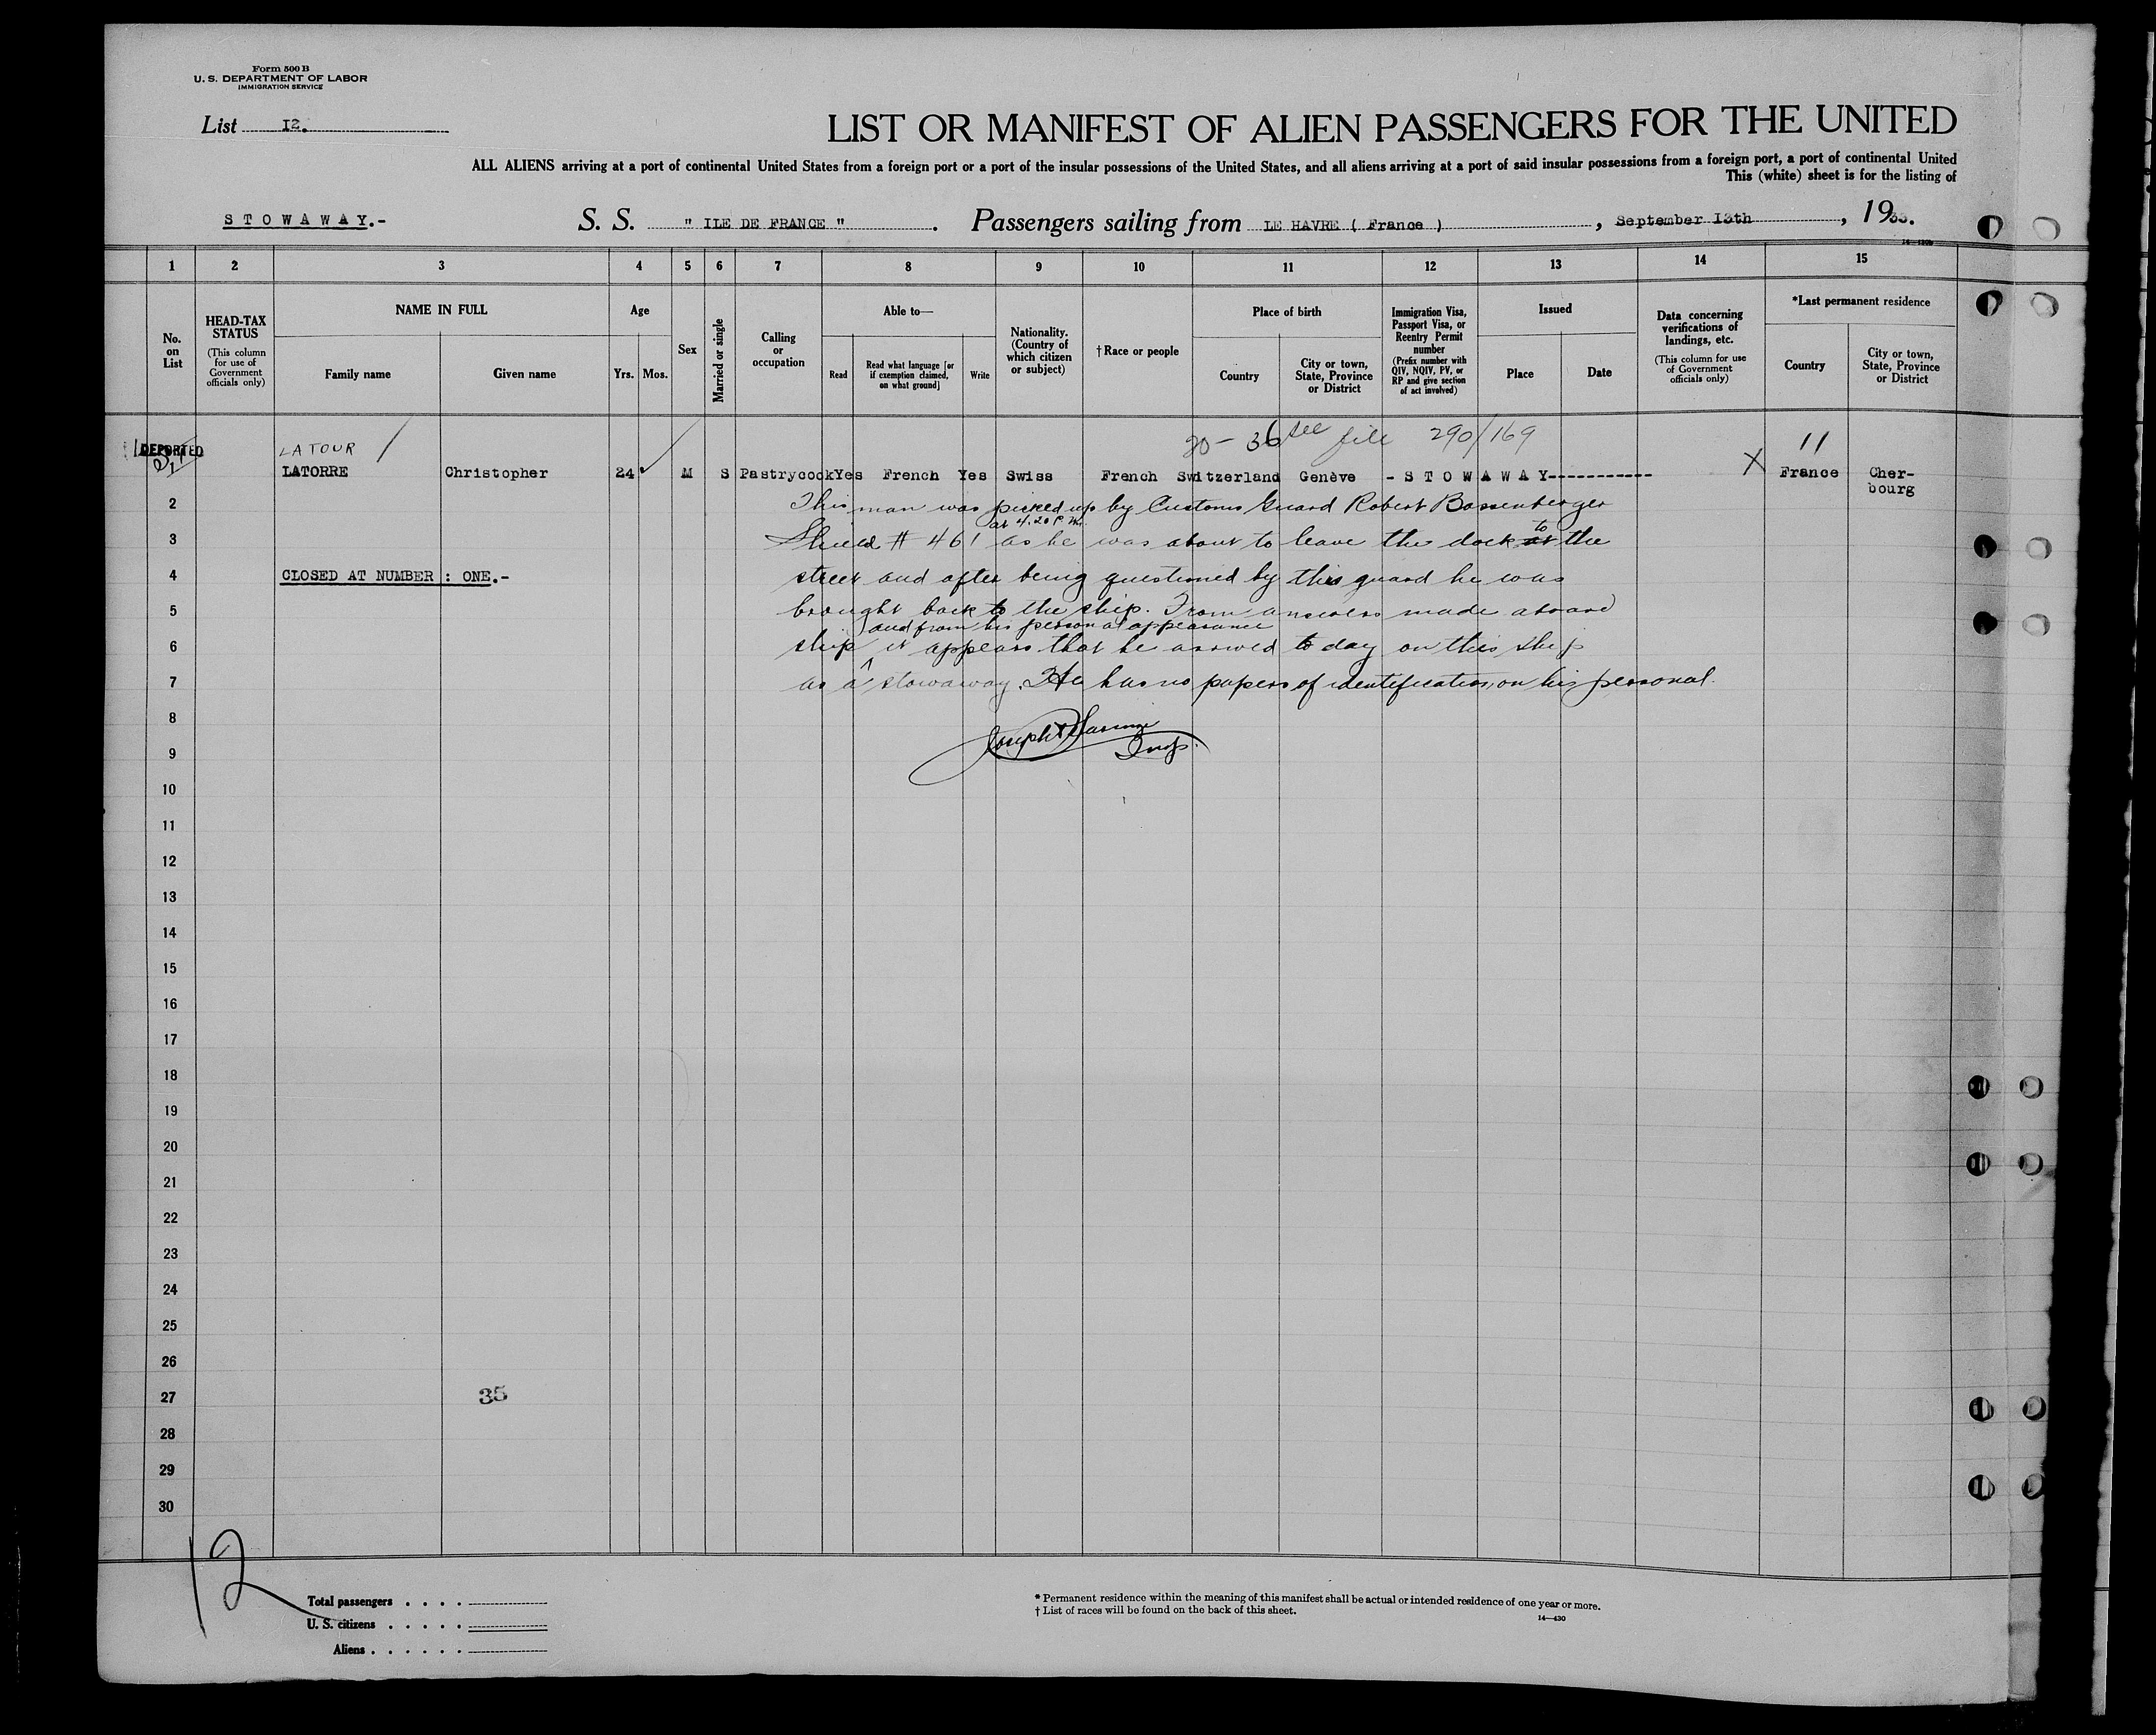 Form 500 B
U. S. DEPARTMENT OF LABOR
IMMIGRATION SERVICE
List I2.
LIST OR MANIFEST OF ALIEN PASSENGERS FOR THE UNITED
ALL ALIENS arriving at a port of continental United States from a foreign port or a port of the insular possessions of the United States, and all aliens arriving at a port of said insular possessions from a foreign port, a port of continental United
This (white) sheet is for the listing of
S T O W A W A Y.-
S. S. " ILE DE FRANCE ". Passengers sailing from LE HAVRE ( France ), September I3th, 1933.
1 2 3 4 5 6 7 8 9 10 11 12 13 14 15
No. on List
HEAD-TAX STATUS
(This column for use of Government officials only)
NAME IN FULL
Family name
Given name
Age
Yrs.
Mos.
Sex
Married or single
Calling or occupation
Able to—
Read
Read what language [or if exemption claimed, on what ground]
Write
Nationality. (Country of which citizen or subject)
†Race or people
Place of birth
Country
City or town, State, Province or District
Immigration Visa, Passport Visa, or Reentry Permit number
(Prefix number with QIV, NQIV, PV, or RP and give section of act involved)
Issued
Place
Date
Data concerning verifications of landings, etc.
(This column for use of Government officials only)
*Last permanent residence
Country
City or town, State, Province or District
20- 36 see file 290/169
11
DEPORTED
LATOUR
LATORRE Christopher 24 M S Pastrycook Yes French Yes Swiss French Switzerland Genève - S T O W A W A Y----------- X France Cher-
bourg
2 This man was picked up by Customs Guard Robert Bassenberger
at 4.20 P.M.
3 Shield # 461 as he was about to leave the dock at to the
4 CLOSED AT NUMBER : ONE.- street and after being questioned by this guard he was
5 brought back to the ship. From answers made aboard
and from his personal appearance
6 ship it appears that he arrived to day on this ship
7 as a stowaway. He has no papers of identification, on his personal.
8
9 Insp.
10
11
12
13
14
15
16
17
18
19
20
21
22
23
24
25
26
27 35
28
29
30
12
Total passengers . . . .
U. S. citizens . . . . .
Aliens . . . . . .
* Permanent residence within the meaning of this manifest shall be actual or intended residence of one year or more.
† List of races will be found on the back of this sheet.
14—430